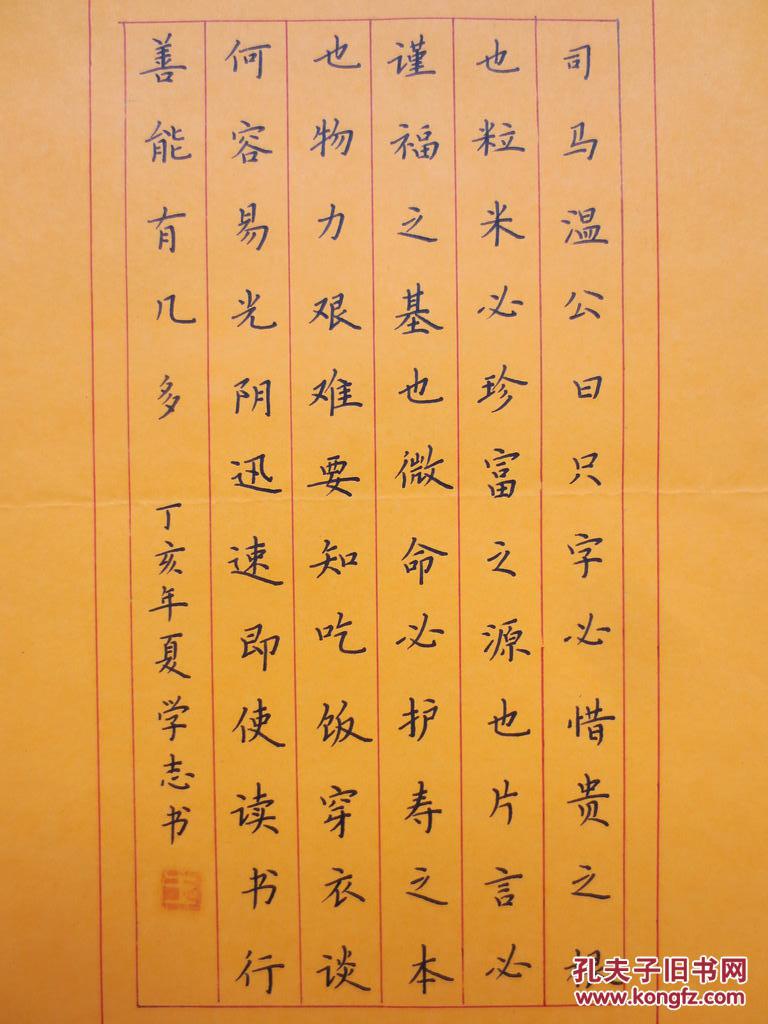 司马温公曰只字必惜贵之根
也粒米必珍富之源也片言必
谨福之基也微命必护寿之本
也物力艰难要知吃饭穿衣谈
何容易光阴迅速即使读书行
善能有几多
丁亥年夏学志书
孔夫子旧书网
www.kongfz.com